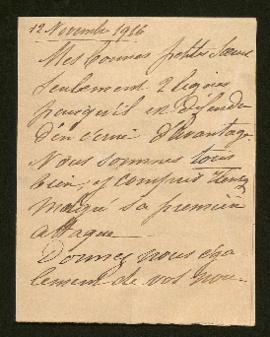 12 Novembre 1916
Mes bonnes petites Sœurs
Seulement 2 lignes
puisqu'il est défendu
d'en écrire d'avantage.
Nous sommes tous
bien, y compris Henry
malgré sa première
attaque
Donnez nous éga-
lement de vos nou-